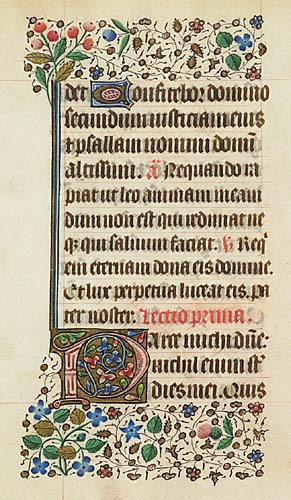 det Confitebor domino
secundum iusticiam eius
et psallam nomini domini
altissimi. A Nequando ra
piat ut leo animam meam
dum non est qui redimat ne
que qui saluum faciat. V Req
em eternam dona eis domine.
Et lux perpetua luceat eis. pa
ter noster. Lectio prima.
Parce michi dne:
nichil enim st
dies mei. Quis